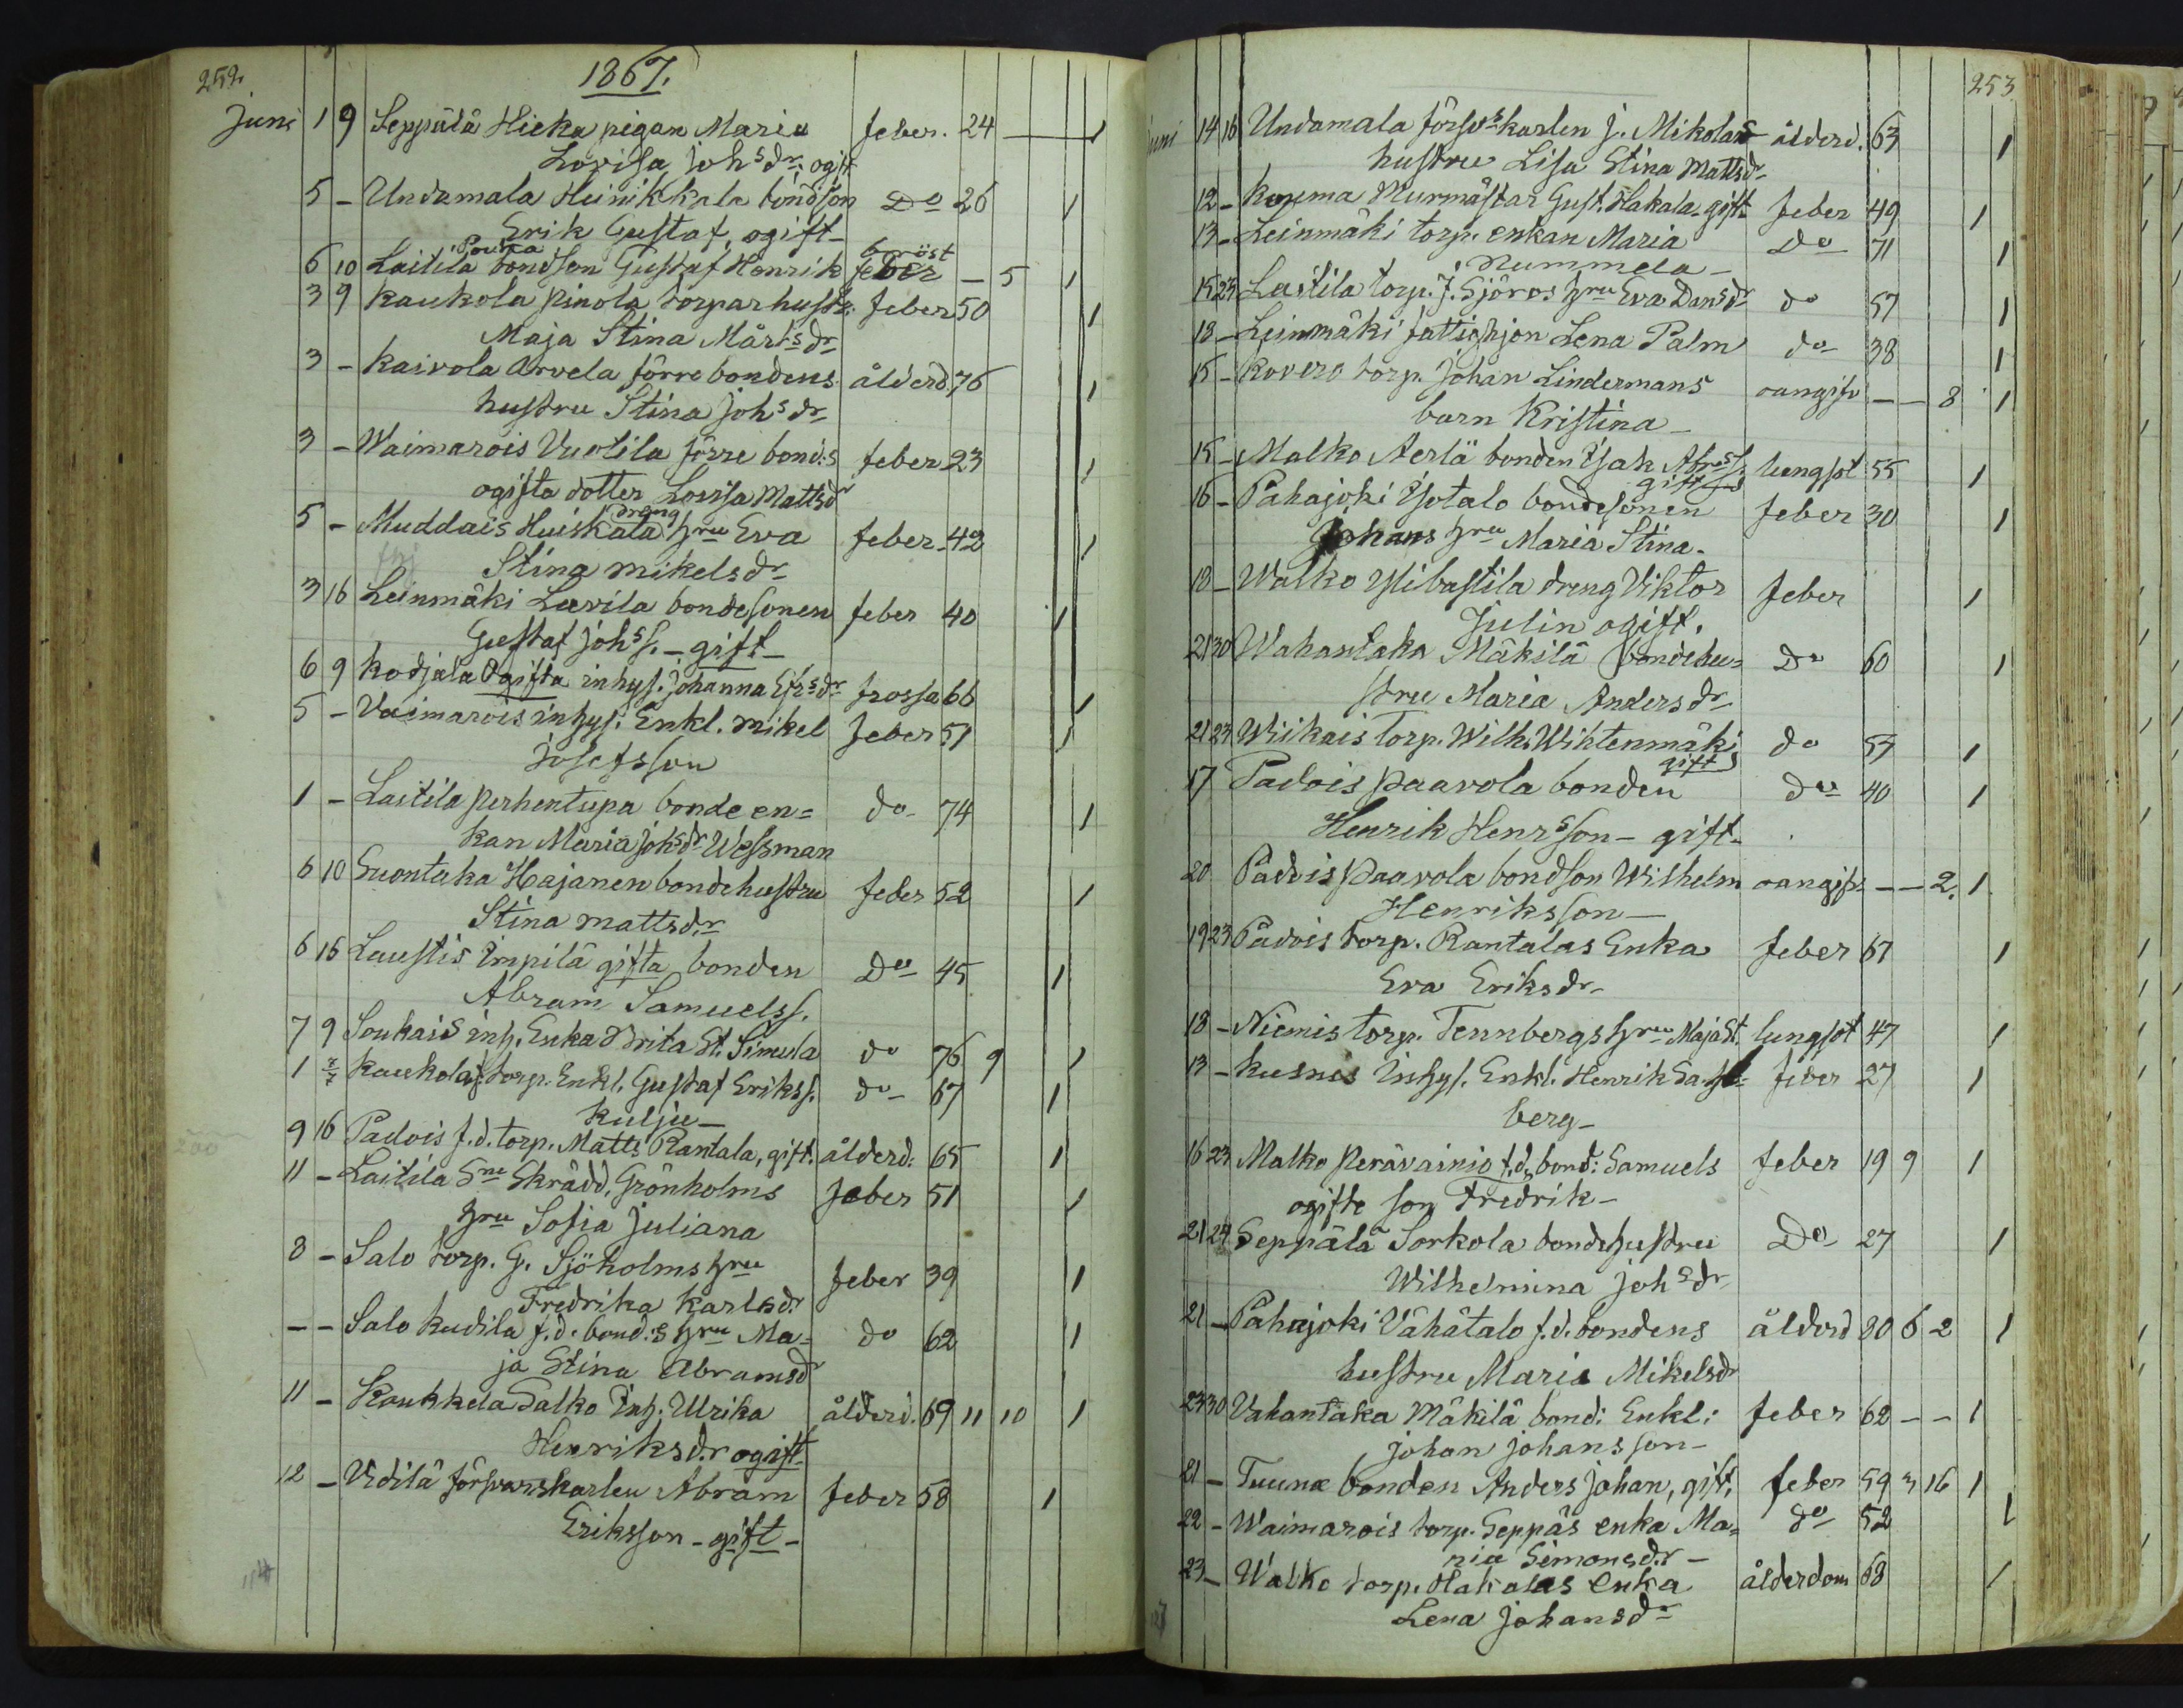 252.
1867.
Juni 1 9 Seppälä Hieka pigan Maria feber. 24 — 1
Lovisa Johsdr ogift
5 - Undamala Heinikkala bondson Do 26 1
Erik Gustaf, ogift -
Pouka bröst
6 10 Laitila bondson Gustaf Henrik feber - 5 1
3 9 Kaukola Pinola torparhustr: feber 50 1
Maja Stina Mårtsdr
3 - Kaivola Arvela förre bondens ålderd. 76 1
hustru Stina Johsdr
3 - Waimarois Vuotila förre bond:s feber 23 1
ogifta dotter Lovisa Mattsdr
dräng
5 - Muddais Huiskala hru Eva feber 42 1
Stina Mikelsdr
3 16 Leinmäki Lavila bondesonen feber 40 1
Gustaf Johss. - gift -
6 9 Kodjala Ogifta inhys. Johanna Efrsdr frossa 66 1
5 - Vaimarois inhys. Enkl. Mikel feber 51 1
Josefsson
1 - Laitila Perhentupa bonde en= do 74 1
kan Maria Johsdr Wessman
6 10 Suontaka Hajanen bondehustru feber 52 1
Stina Mattsdr
6 16 Laustis Impilä gifta bonden Do 45 1
Abram Samuelss.
7 9 Soukais inh. Enka Brita St. Simula do 76 9 1
1 7/7 Kaukola f. torp. Enkl. Gustaf Erikss. do 67 1
Kulju -
9 16 Padois f.d. torp. Matts Rantala, gift. ålderd: 65 1
11 - Laitila Sne Skrädd. Grönholms feber 51 1
hru Sofia Juliana
8 - Salo torp. G. Sjöholms hru feber 39 1
Fredrika Karlsdr
- - Salo Kudila f.d. bond:s hru Ma= do 62 1
ja Stina Abramsdr
11 - Kaukkela Salko Inh. Ulrika ålderd. 69 11 10 1
Henriksdr ogift
12 - Vidilä försvarskarlen Abram feber 58 1
Eriksson - gift -
114
253.
Juni 14 16 Undamala försvskarlen J. Mikolas ålderd. 63 1
hustru Lisa Stina Mattsdr
12 - Murmästar Gust. Hakala. gift feber 49 1
13 - Leinmäki torp. enkan Maria Do 71 1
Nummela -
15 23 Laitila torp. J. Sjöros hru Eva Dansdr do 57 1
13 - Leinmäki fattighjon Lena Palm do 38 1
15 - Kovero torp. Johan Lindermans oangifv - - 8 1
barn Kristina -
15 - Malko Aerlä bonden Isak Abrss. lungsot 55 1
gift
16 - Pahajoki Ylotalo bondesonen feber 30 1
Johans hru Maria Stina.
18 - Walko Ylibastila dreng Viktor feber 1
Julin ogift.
21 30 Wahantaka Mäkilä bondehu= Do 60 1
stru Maria Andersdr
21 23 Wiikais Torp. Wilh. Wihtenmäki do 57 1
gift
17 Padois Paavola bonden do 40 1
Henrik Henrsson - gift -
20 Padois Paavola bondson Wilhelm oangifv - - 2. 1
Henriksson -
19 23 Padois torp. Rantalas Enka feber 67 1
Eva Eriksdr
18 - Niemis torp. Tennbergs hru Maja St. lungsot 47 1
13 - Kusnis Inhys. Enkl. Henrik feber 27 1
berg -
16 23 Malko Perävainio f.d. bond: Samuels feber 19 9 1
ogifte son Fredrik -
21 24 Seppälä Sorkola bondehustru Do 27 1
Wilhelmina Johsdr
21 - Pahajoki Vähätalo f.d. bondens ålderd 80 6 2 1
hustru Maria Mikelsdr
23 30 Vahantaka Mäkilä bond: Enkl: feber 62 - - 1
Johan Johansson -
21 - Tuuna bonden Anders Johan, gift. feber 59 3 16 1
22 - Waimarois torp. Seppäs enka Ma= do 52 1
ria Simonsdr -
23 - Walko torp. Hakalas Enka ålderdom 68 1
Lena Johansdr
127